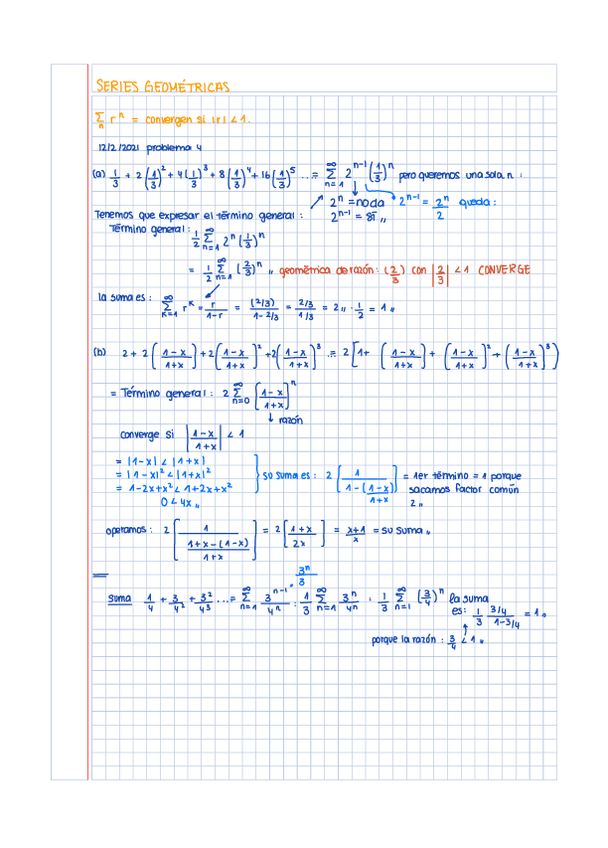 SERIES GEOMÉTRICAS
Σ_n r^n = convergen si |r| < 1.
12/2/2021 problema 4
(a) 1/3 + 2(1/3)^2 + 4(1/3)^3 + 8(1/3)^4 + 16(1/3)^5 ... = Σ_{n=1}^∞ 2^{n-1} (1/3)^n pero queremos una sola n :
2^n = no da 2^{n-1} = 2^n/2 queda :
Tenemos que expresar el término general : 2^{n-1} = sí
Término general : 1/2 Σ_{n=1}^∞ 2^n (1/3)^n
= 1/2 Σ_{n=1}^∞ (2/3)^n geométrica de razón : (2/3) con |2/3| < 1 CONVERGE
la suma es : Σ_{k=1}^∞ r^k = r/1-r = (2/3)/1-2/3 = 2/3/1/3 = 2 · 1/2 = 1
(b) 2 + 2(1-x/1+x) + 2(1-x/1+x)^2 + 2(1-x/1+x)^3 ... = 2[1 + (1-x/1+x) + (1-x/1+x)^2 + (1-x/1+x)^3)
= Término general : 2 Σ_{n=0}^∞ [1-x/1+x]^n
↓ razón
converge si |1-x/1+x| < 1
= |1-x| < |1+x|
= |1-x|^2 < |1+x|^2 su suma es : 2[1/1-(1-x)/1+x] = 1er término = 1 porque
= 1-2x+x^2 < 1+2x+x^2 sacamos factor común
0 < 4x 2
operamos : 2[1/1+x-(1-x)/1+x] = 2[1+x/2x] = x+1/x = su suma
3^n/3
suma 1/4 + 3/4^2 + 3^2/4^3 ... = Σ_{n=1}^∞ 3^{n-1}/4^n : 1/3 Σ_{n=1}^∞ 3^n/4^n · 1/3 Σ_{n=1}^∞ (3/4)^n la suma
es : 1/3 3/4/1-3/4 = 1
porque la razón : 3/4 < 1